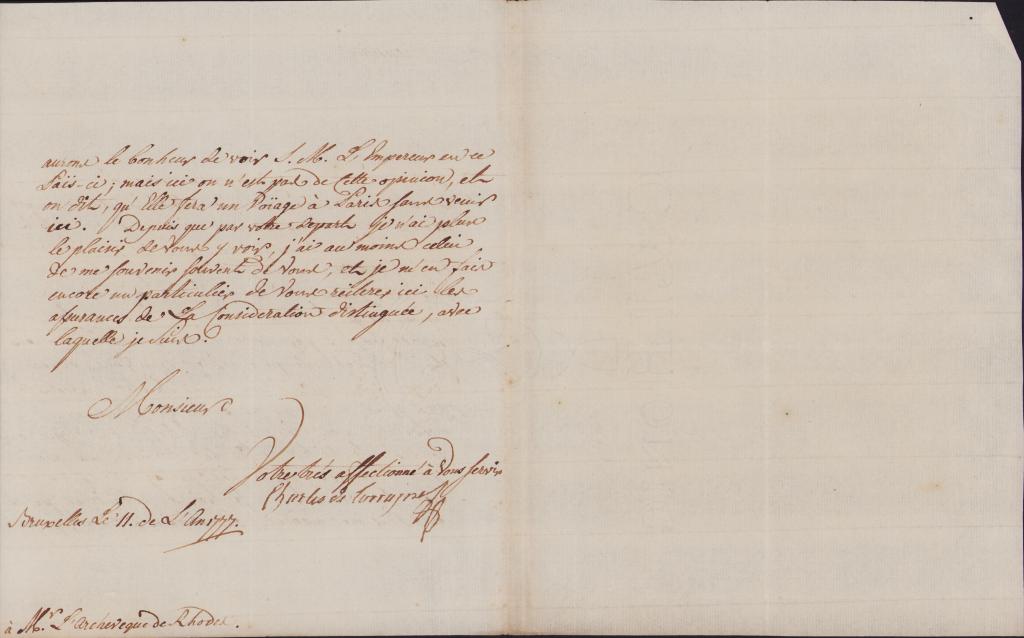 aurons le bonheur de voir S. M. L'Empereur en ce
Païs-ci; mais ici on n'est pas de cette opinion, et
on dit, qu'Elle fera un Voïage à Paris sans venir
ici. Depuis que par votre depart je n'ai plus
le plaisir de vous y voir, j'ai au moins celui
de me souvenir souvent de vous, et je m'en fais
encore un particulier de vous réiterer ici les
assurances de La Consideration distinguée, avec
laquelle je suis.
Monsieur
Votre très affectionné à vous servir
Charles de Lorraine
Bruxelles Le 11. de L'An 1777.
à M.r L'archeveque de Rhodes.